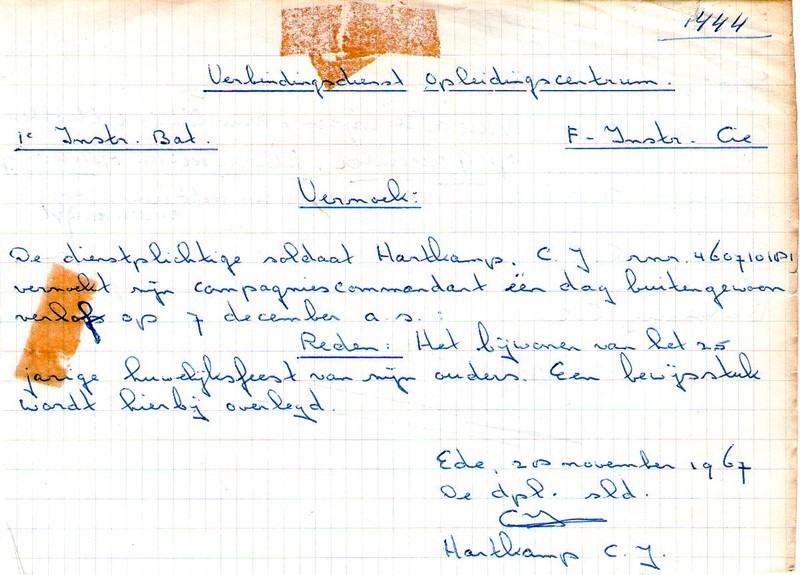 1444
Verbindingsdienst Opleidingscentrum.
1e Instr. Bat. F - Instr. Cie
Verzoek:
De dienstplichtige soldaat Hartkamp, C. J. rnr.
verzoekt zijn compagniescommandant één dag buitengewoon
verlof op 7 december a.s.:
Reden: Het bijwonen van het 25
jarige huwelijksfeest van zijn ouders. Een bewijsstuk
wordt hierbij overlegd.
Ede, november 1967
De dpl. sld.
Hartkamp C. J.